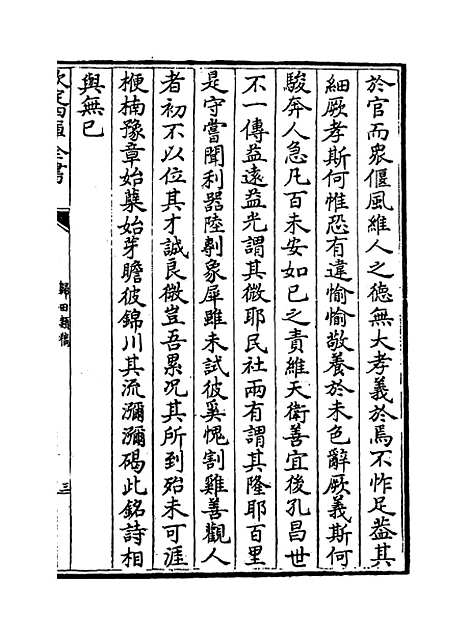 於官而眾偃風維人之德無大孝義於焉不怍足葢其
細厥孝斯何惟恐有違愉愉敬養於未色辭厥義斯何
駿奔人急凡百未安如已之責維天衛善宜後孔昌世
不一傳益遠益光謂其微耶民社兩有謂其隆耶百里
是守嘗聞利器陸剸象犀雖未試彼奚愧割雞善觀人
者初不以位其才誠良微豈吾累况其所到殆未可涯
楩楠豫章始蘖始芽瞻彼錦川其流瀰瀰碣此銘詩相
與無已
欽定四庫全書
歸田類稿
三